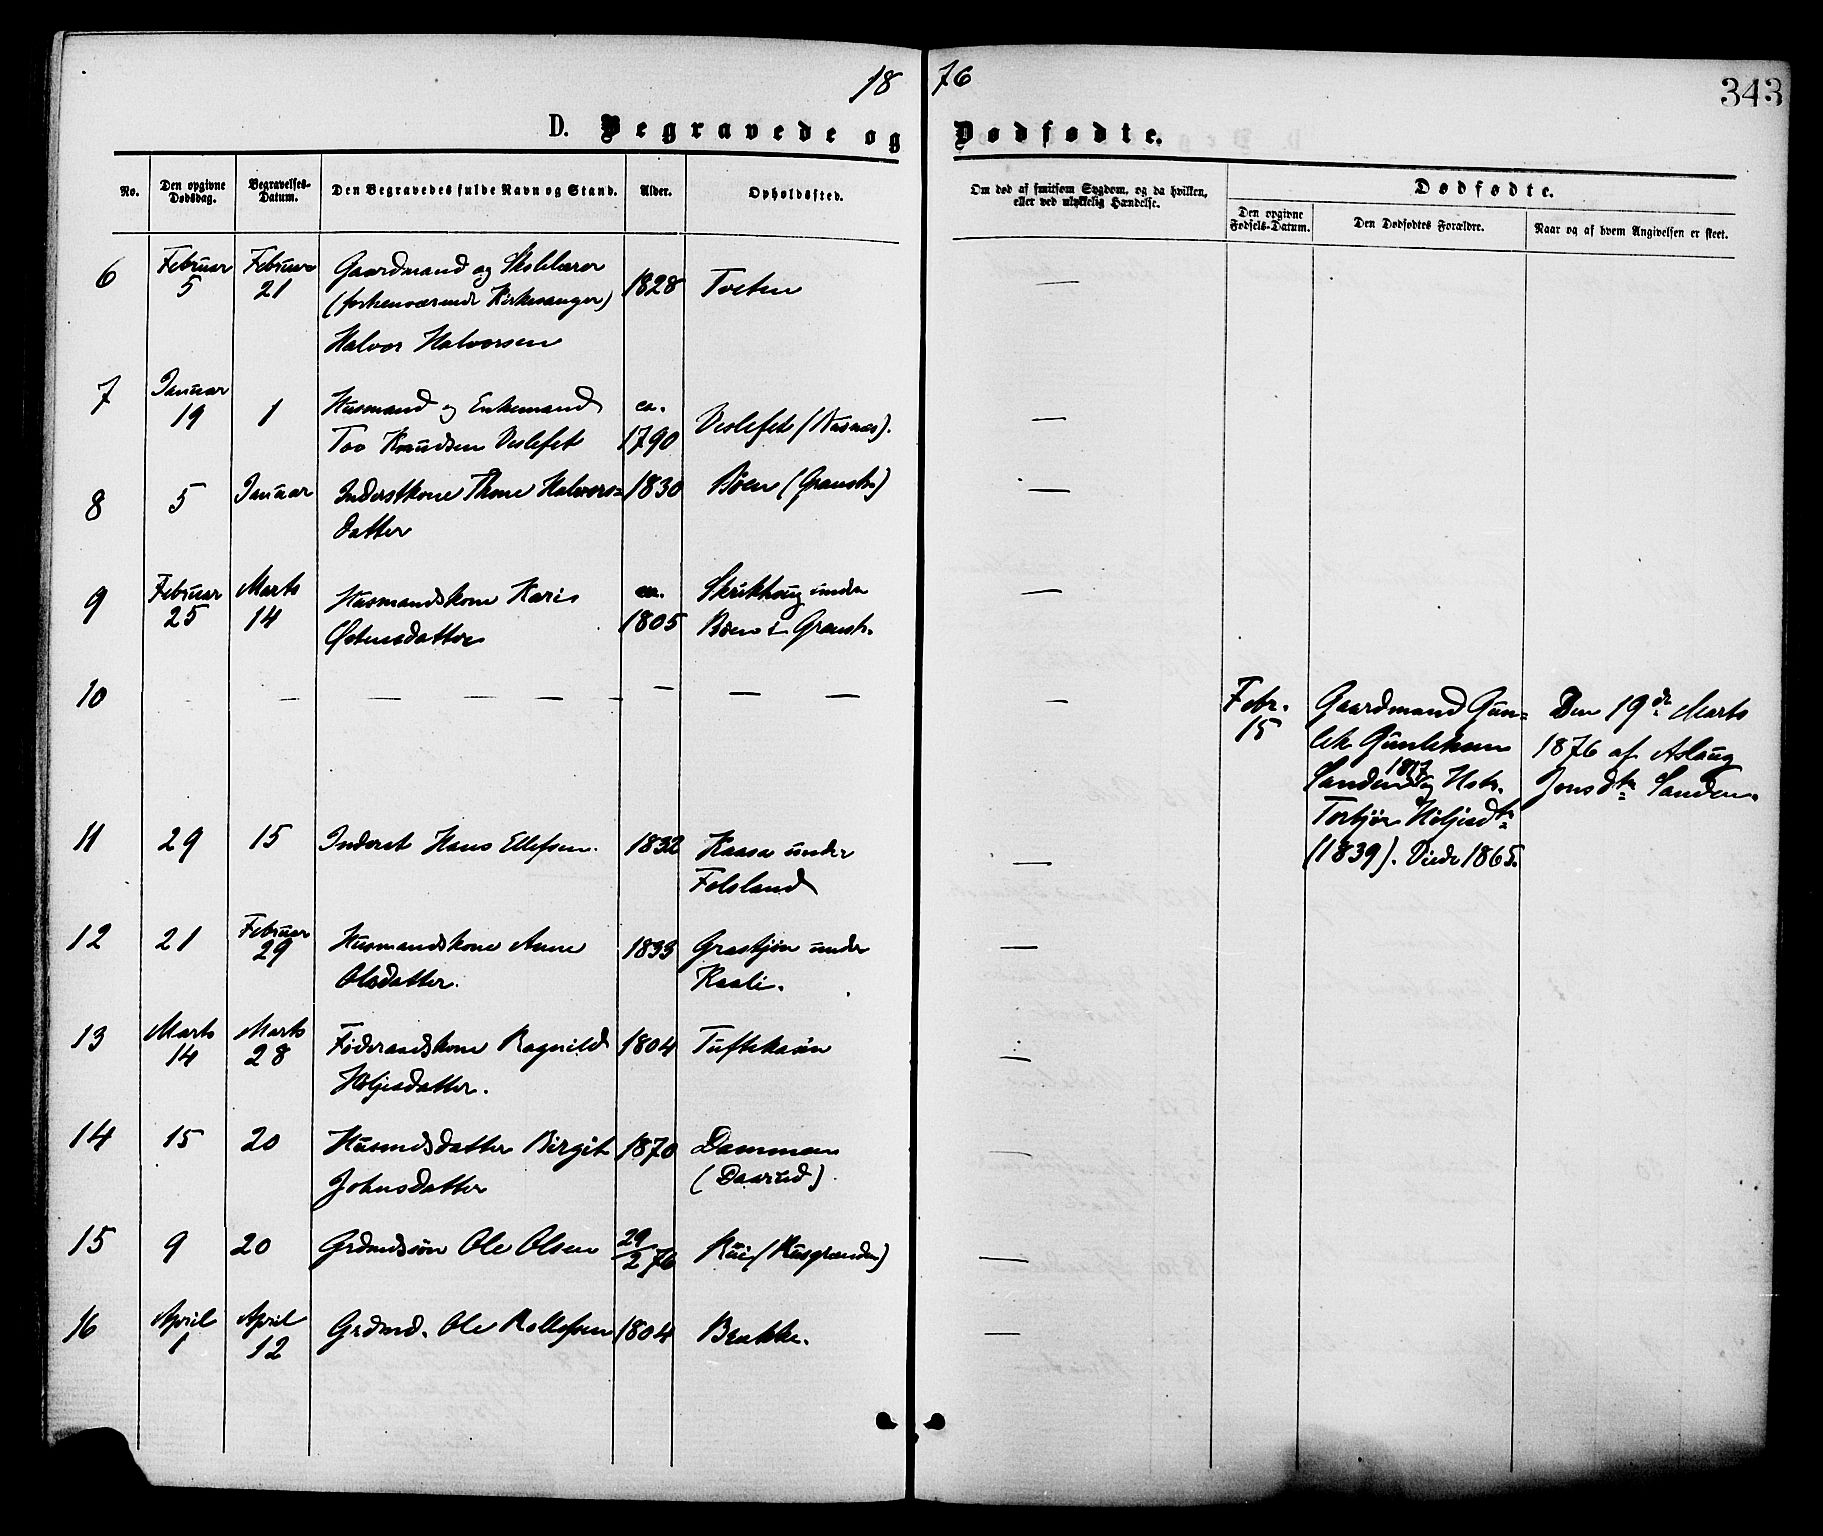 1876
343
D. Begravede og Dødfødte.
No.
Den opgivne Dødsdag.
Begravelses-Datum.
Den Begravedes fulde Navn og Stand.
Alder.
Opholdssted.
Om død af smitsom Sygdom, og da hvilken, eller ved ulykkelig Hændelse.
Dødfødte.
Den opgivne Fødsels-Datum.
Den Dødfødtes Forældre.
Naar og af hvem Angivelsen er skeet.
6 Februar 5 Februar 21 Gaardmand og Skolelærer 1828 Tveten —
(forhenværende Kirkesanger)
Halvor Halvorsen
7 Januar 19 1 Husmand og Enkemand ca. 1790 Veslefet (Husnæs). —
Tov Knudsen Veslefet
8 5 Januar Inderstkone Thone Halvors= 1830 Bøen (Gransh.) —
datter
9 Februar 25 Marts 14 Husmandskone Kari ca. 1805 Skrikhaug under —
Østensdatter Bøen i Gransh.
10 — — — — — — Febr. 15 Gaardmand Gun= Den 19de Marts
lek Gunleksen 1876 af Aslaug
Sanden 1817 og Hstr. Jonsdtr Sanden.
Torbjør Høljesdtr
(1839). Viede 1865.
11 29 15 Inderst Hans Ellefsen. 1832 Kaasa under —
Felsland
12 21 Februar 29 Husmandskone Anne 1833 Grastjøn under —
Olsdatter. Kaali.
13 Marts 14 Marts 28 Føderaadskone Ragnild 1804 Tufteksin —
Høljesdatter.
14 15 20 Husmdsdatter Birgit 1870 Dammen —
Johnsdatter (Daarud).
15 9 20 Grdmdssøn Ole Olsen 29/2 76 Rui (Rusgrænden) —
16 April 1 April 12 Grdmd. Ole Rollefsen 1804 Brekke. —